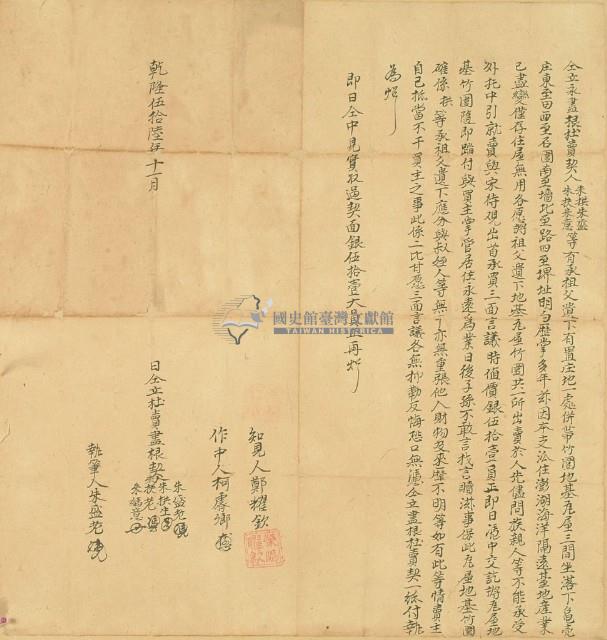 仝立永盡根杜賣契人朱拱朱盛朱扶朱意等有承祖父遺下有置庄地一處併帶竹圍地基瓦屋三間坐落下
庄東至田西至石圍南至墻北至路四至埤址明白歷掌多年玆因本之泒住澎湖海洋隔遠基地產業
已盡變僅存住屋無用各愿將祖父遺下地基瓦屋竹圍共一所出賣於人先儘問叔親人等不能承受
外托中引就賣與宋待觀出首承買三面言議時值價銀伍拾壹員正即日憑中交訖將瓦屋地
基竹圍隨即踏付與買主掌管居住永遠為業日後子孫不敢言找言贖滋事保此瓦屋地基竹圍
確係拱等承祖父遺下應分與叔姪人等無干亦無重張他人財物及來歷不明等如有此等情賣主
自己抵當不干買主之事此係二比甘愿三面言議各無抑勒反悔恐口無憑仝立盡根杜賣契一紙付執
為炤
即日仝中見實收過契面銀伍拾壹大員正再炤
知見人鄭耀欽
作中人柯 卿
乾隆伍拾陸年十一月 日仝立杜賣盡根契朱盛老朱拱生朱扶老朱意
執筆人朱盛老
國史館臺灣文獻館
TAIWAN HISTORICA